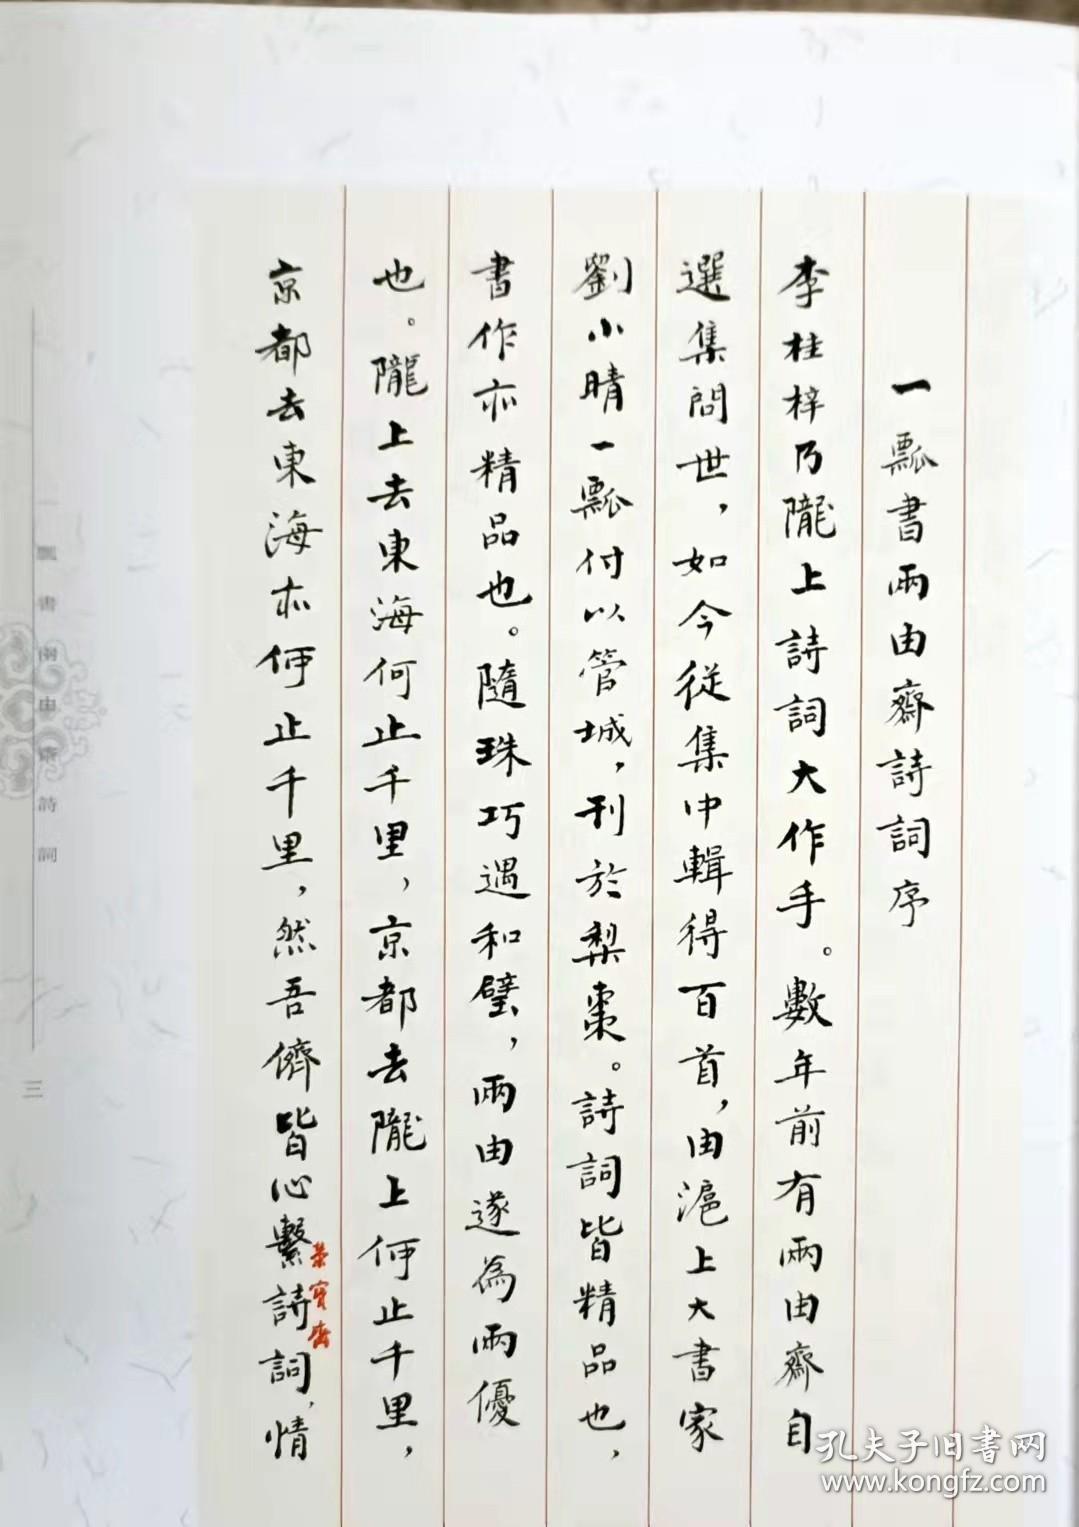 一瓢書兩由齋詩詞序
李桂梓乃隴上詩詞大作手。數年前有兩由齋自
選集問世，如今從集中輯得百首，由滬上大書家
劉小晴一瓢付以管城，刊於梨棗。詩詞皆精品也，
書作亦精品也。隨珠巧遇和璧，兩由遂為兩優
也。隴上去東海何止千里，京都去隴上何止千里，
京都去東海亦何止千里，然吾儕皆心繫詩詞，情
榮寶齋
一瓢書兩由齋詩詞
三
孔夫子旧書网
www.kongfz.com